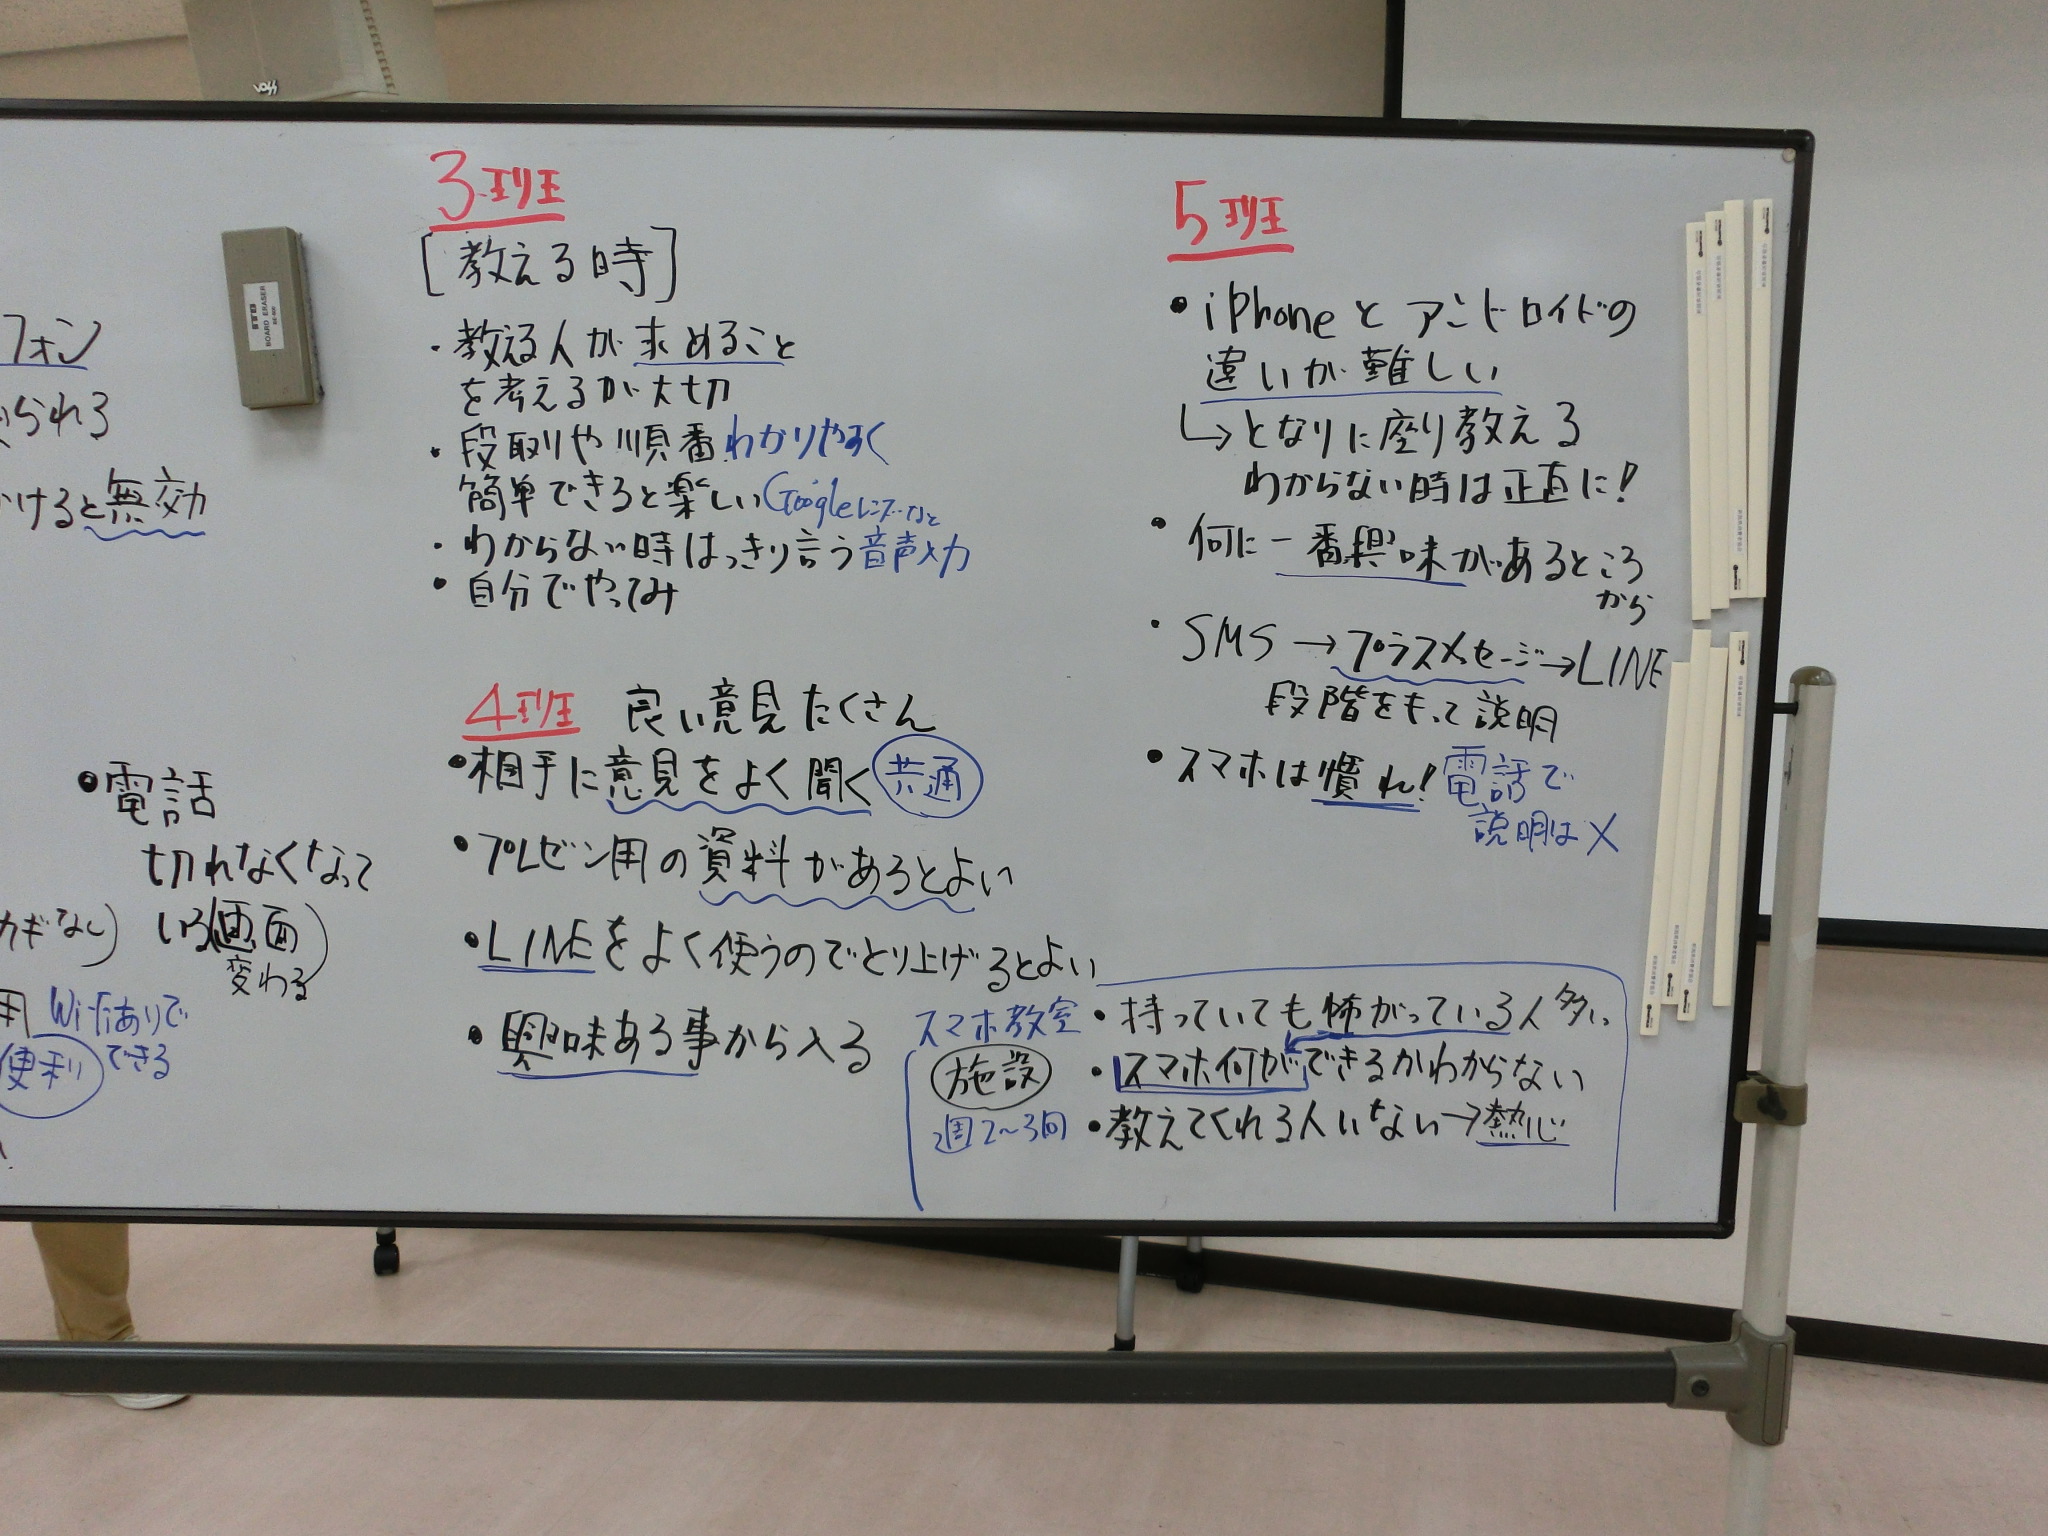 フォン
られる
けると無効
・電話
切れなくなって
カギなし) いる(画面)
変わる
用 Wifiありで
便利 できる
BOARD ERASER
3班
[教える時]
・教える人が求めること
を考えるが大切
・段取りや順番わかりやすく
簡単できると楽しい Googleレンズなど
・わからない時はっきり言う 音声入力
・自分でやってみ
4班 良い意見たくさん
・相手に意見をよく聞く 共通
・プレゼン用の資料があるとよい
・LINEをよく使うのでとり上げるとよい
・興味ある事から入る
5班
・iPhoneとアンドロイドの
違いが難しい
↳となりに座り教える
わからない時は正直に!
・何に一番興味があるところ
から
・SMS→プラスメッセージ→LINE
段階をもって説明
・スマホは慣れ! 電話で
説明は×
スマホ教室 ・持っていても怖がっている人多い
施設 ・スマホ何ができるかわからない
週2〜3回 ・教えてくれる人いない→熱心